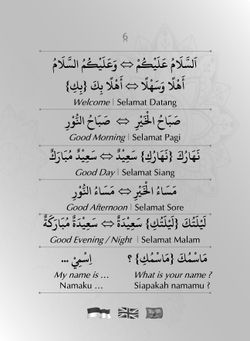 6
اَلسَّلَامُ عَلَيْكُمْ ⇔ وَعَلَيْكُمُ السَّلَامُ
أَهْلًا وَسَهْلًا ⇔ أَهْلًا بِكَ {بِكِ}
Welcome | Selamat Datang
صَبَاحُ الْخَيْرِ ⇔ صَبَاحُ النُّوْرِ
Good Morning | Selamat Pagi
نَهَارُكَ {نَهَارُكِ} سَعِيْدٌ ⇔ سَعِيْدٌ مُبَارَكٌ
Good Day | Selamat Siang
مَسَاءُ الْخَيْرِ ⇔ مَسَاءُ النُّوْرِ
Good Afternoon | Selamat Sore
لَيْلَتُكَ {لَيْلَتُكِ} سَعِيْدَةٌ ⇔ سَعِيْدَةٌ مُبَارَكَةٌ
Good Evening / Night | Selamat Malam
مَاسْمُكَ {مَاسْمُكِ} ؟ اِسْمِيْ ...
My name is ... What is your name ?
Namaku ... Siapakah namamu ?